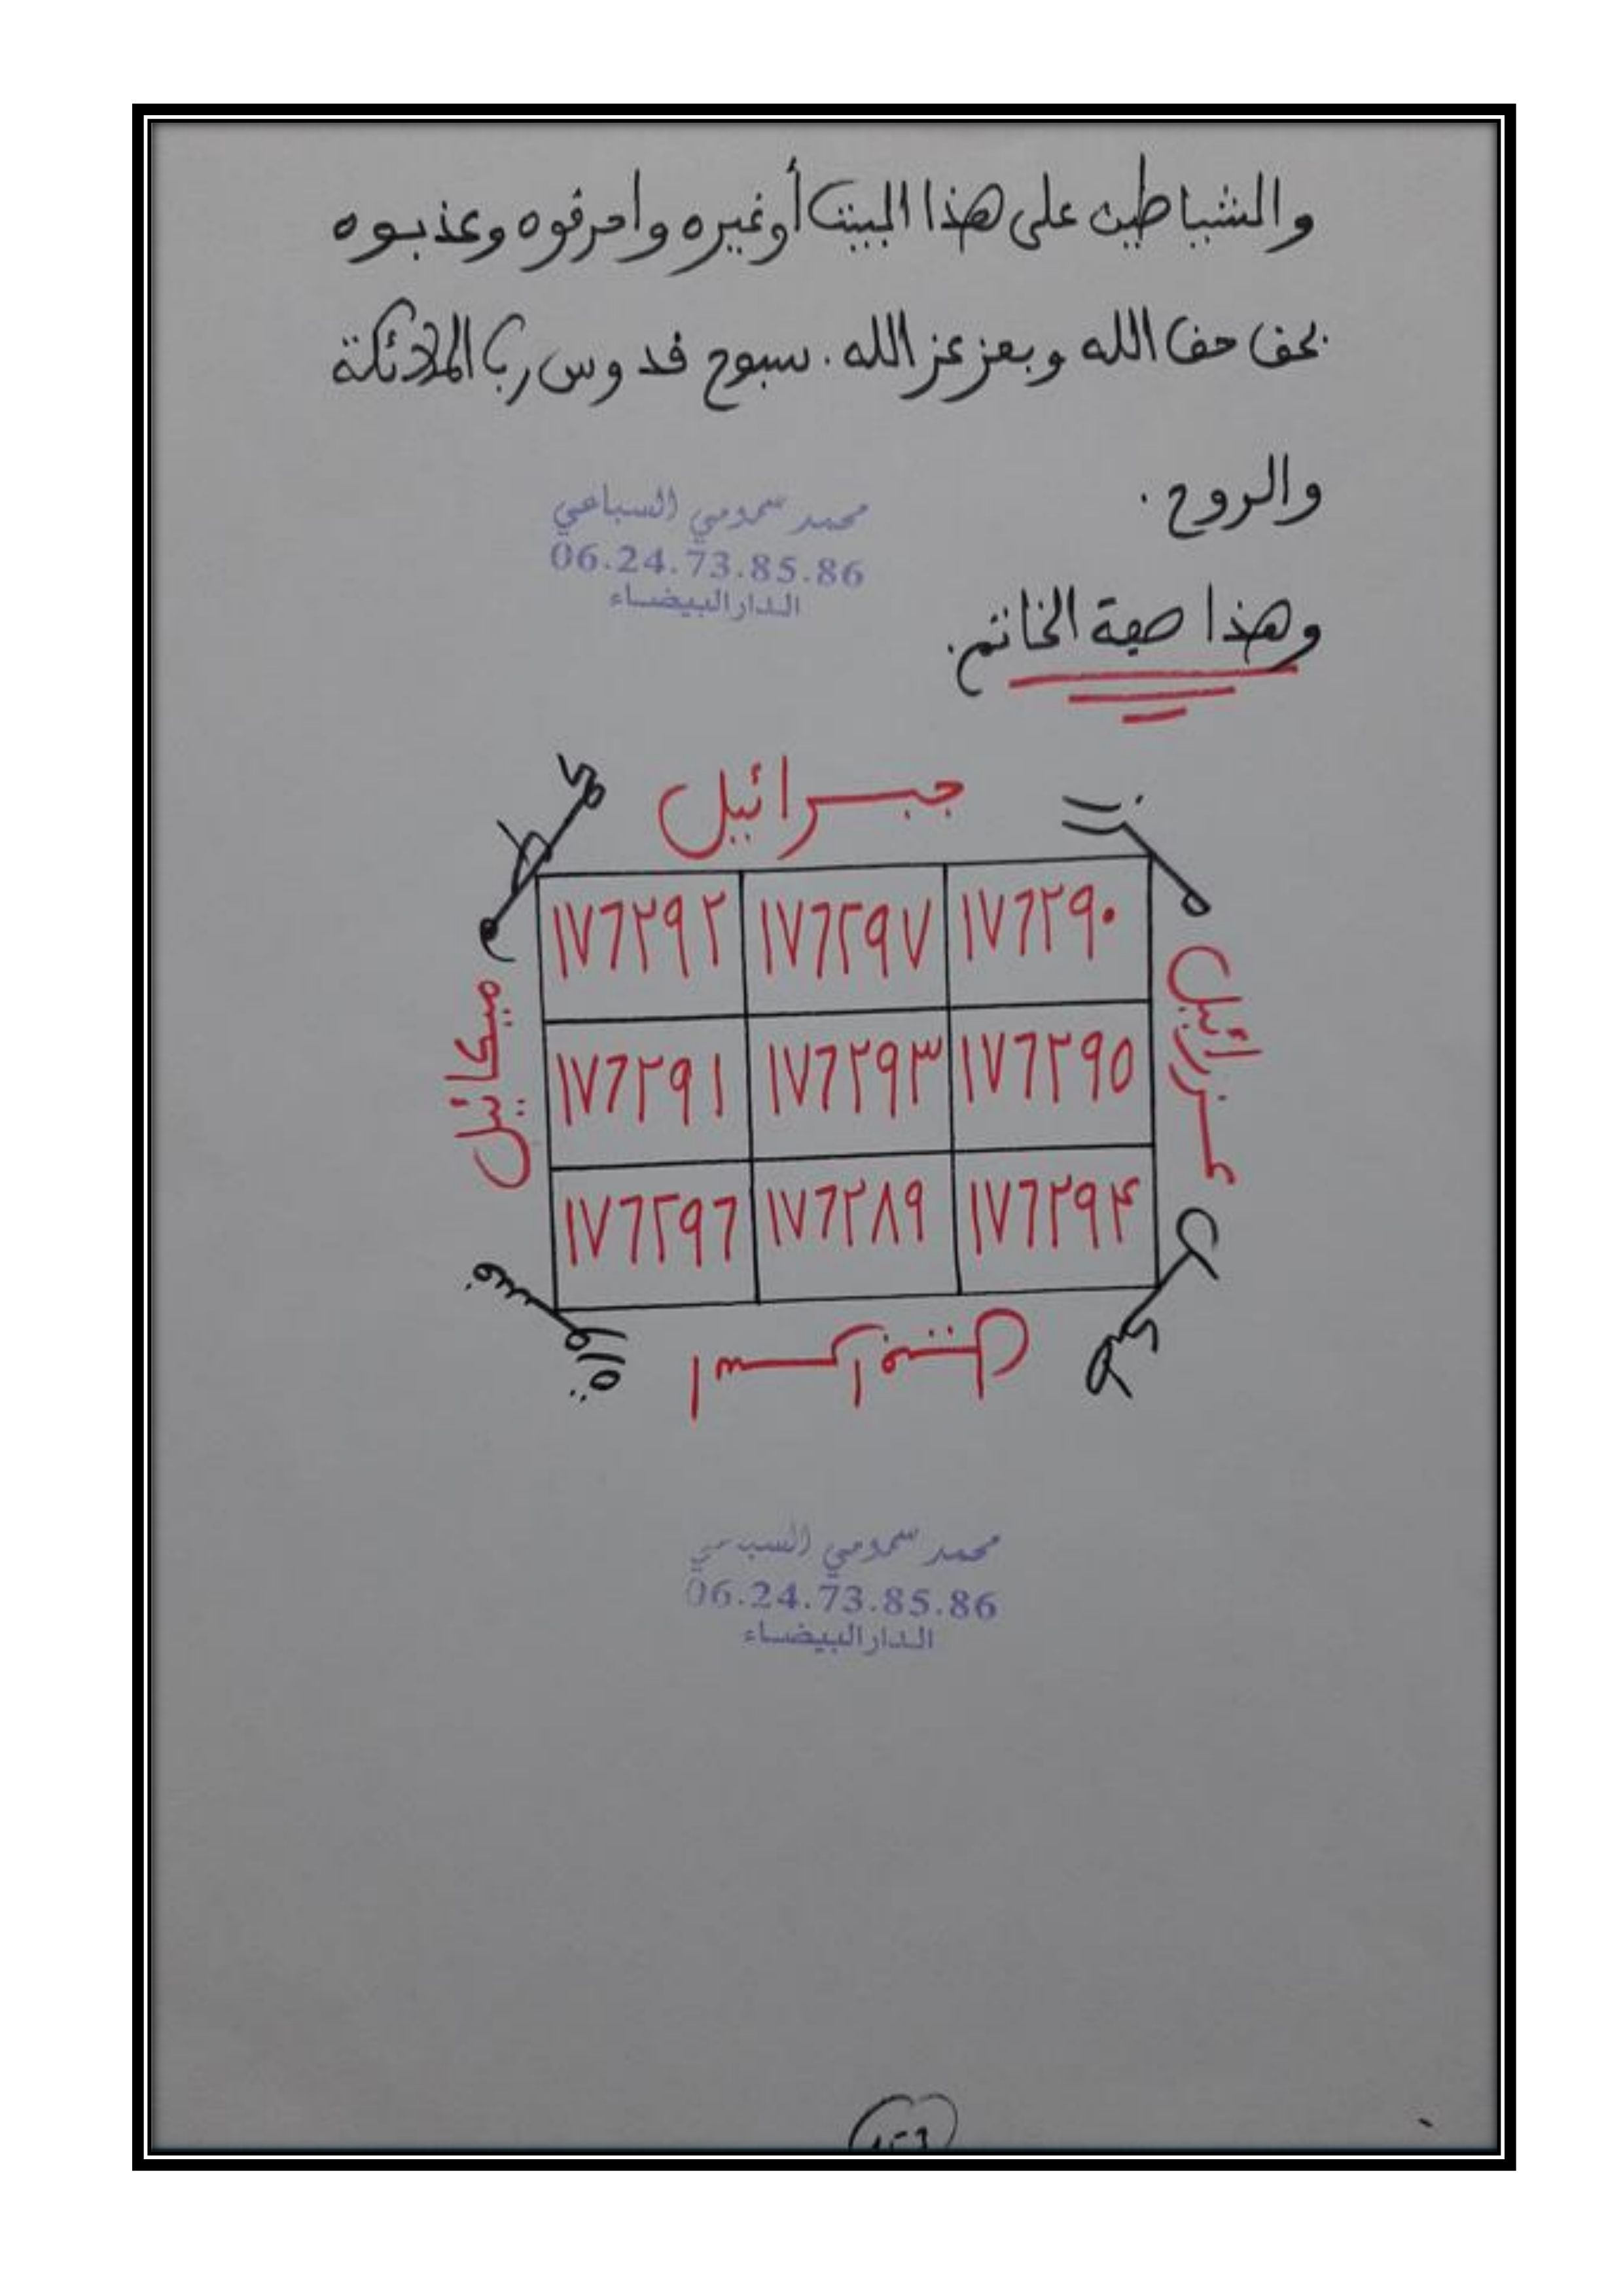 والشياطين على هذا البيت أو غيره واحرقوه وعذبوه
بحق حق الله وبعز عز الله . سبوح قدوس رب الملائكة
والروح .
محمد سمومي السباعي
06.24.73.85.86
الدار البيضاء
وهذا صفة الخاتم .
جبرائيل
١٧٦٢٩٢ ١٧٦٢٩٧ ١٧٦٢٩٠
عزرائيل
ميكائيل
١٧٦٢٩١ ١٧٦٢٩٣ ١٧٦٢٩٥
١٧٦٢٩٦ ١٧٦٢٨٩ ١٧٦٢٩٤
محمد سمومي
06.24.73.85.86
الدار البيضاء